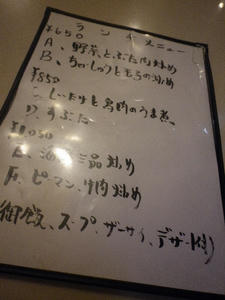 ランチメニュー
¥650
A、野菜とぶた肉炒め
B、ちゃしゅうともやし炒め
¥850
C、しいたけと鳥肉のうま煮
D、すぶた
¥1,050
E、海三品炒め
F、ピーマン、牛肉炒め
御飯、スープ、ザーサイ、デザート付